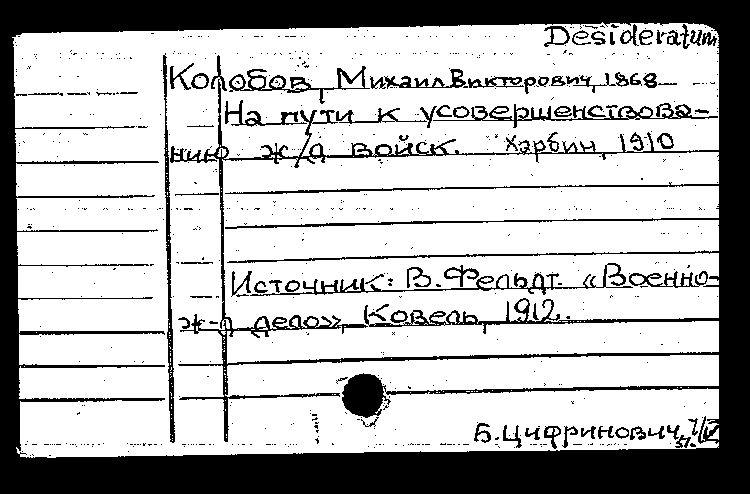 Desideratum
Колобов, Михаил Викторович, 1868
На пути к усовершенствова-
нию ж/д войск. Харбин, 1910
Источник: В. Фельдт. «Военно-
ж-д дело», Ковель, 1912.
Б. Цифринович,